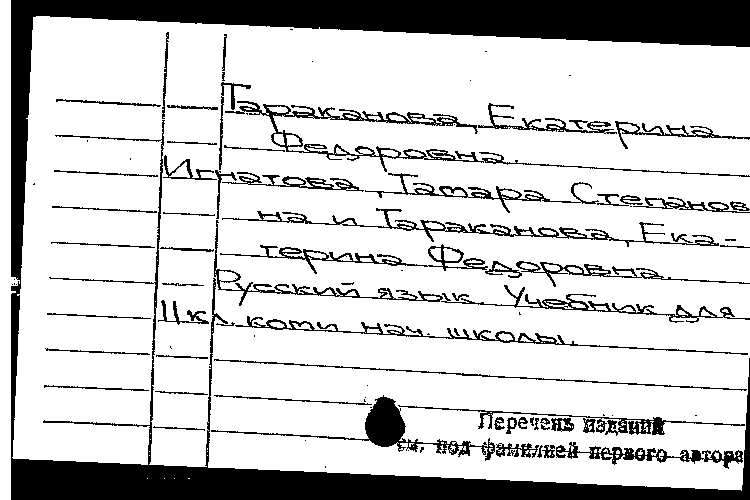 Тараканова, Екатерина
Федоровна.
Игнатова, Тамара Степанов
на и Тараканова, Ека-
терина Федоровна.
Русский язык. Учебник для
II кл. коми нач. школы.
Перечень изданий
см. под фамилией первого автора